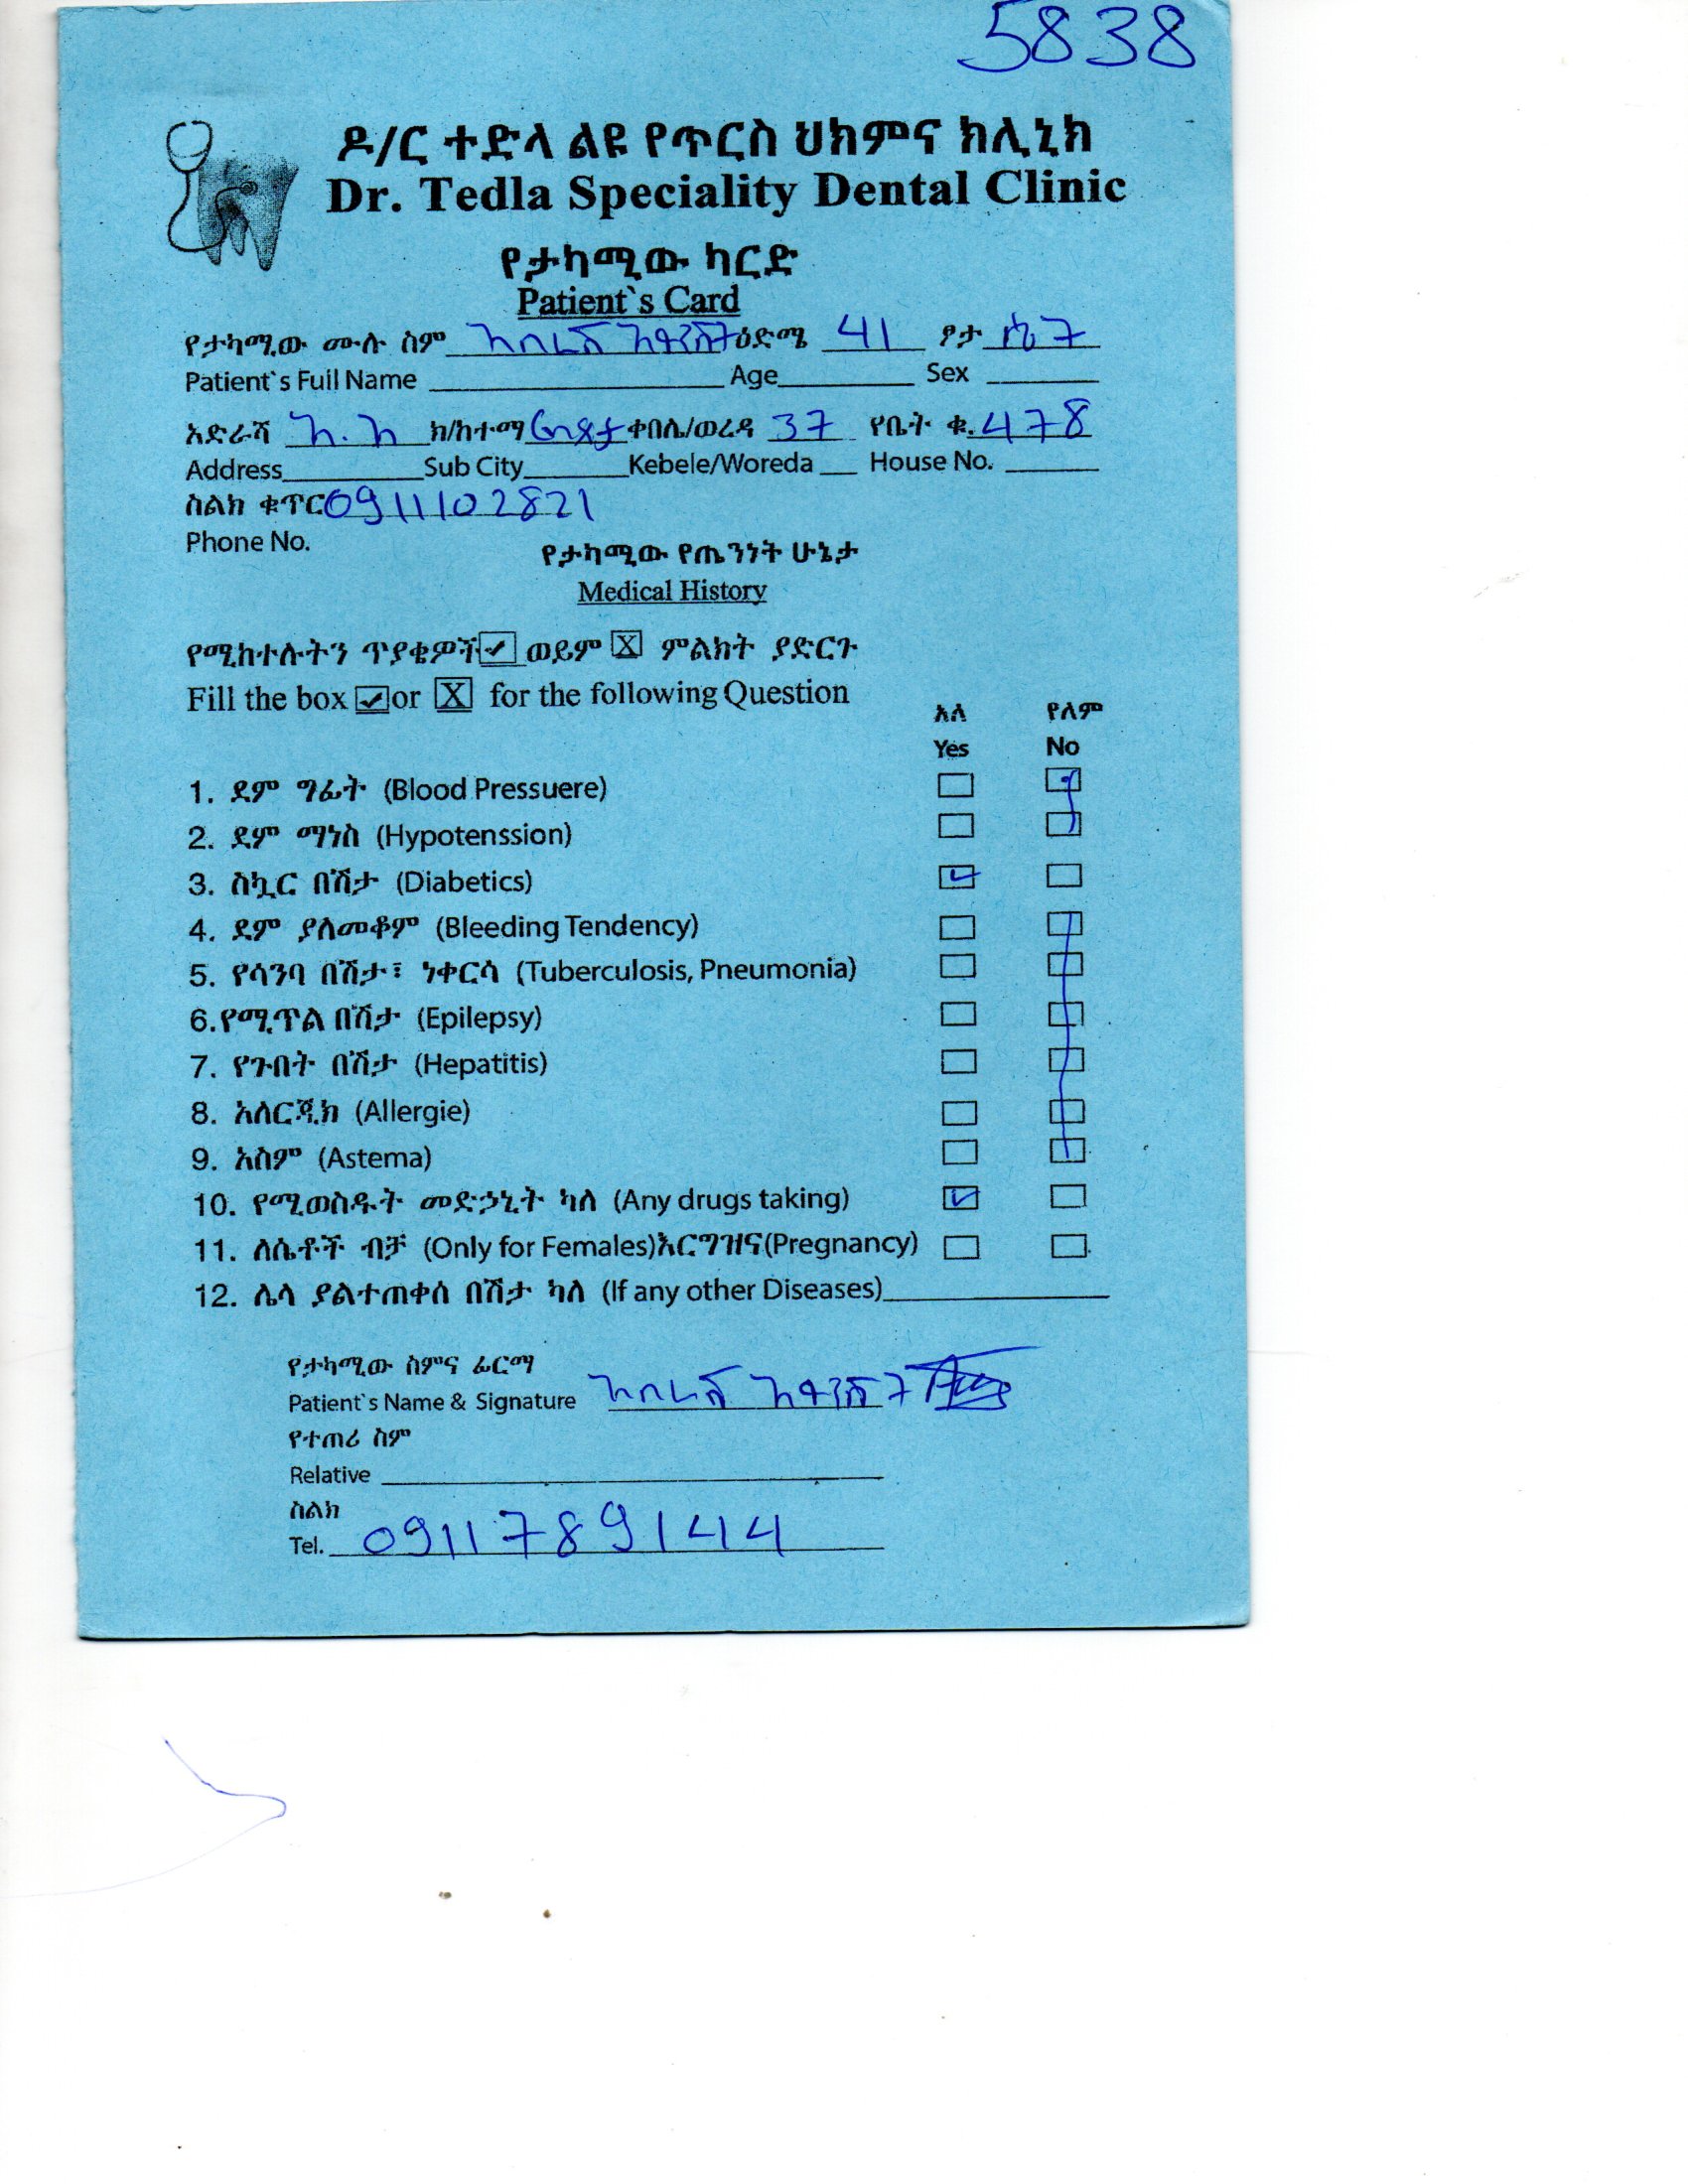 5838
ዶ/ር ተድላ ልዩ የጥርስ ህክምና ክሊኒክ
Dr. Tedla Speciality Dental Clinic
የታካሚው ካርድ
Patient`s Card
የታካሚው ሙሉ ስም አበራሽ ዕድሜ 41 ፆታ ሴት
Patient`s Full Name Age Sex
አድራሻ አ.አ ክ/ከተማ ቀበሌ/ወረዳ 37 የቤት ቁ. 478
Address Sub City Kebele/Woreda House No.
ስልክ ቁጥር 0911102821
Phone No.
የታካሚው የጤንነት ሁኔታ
Medical History
የሚከተሉትን ጥያቄዎች ✓ ወይም X ምልክት ያድርጉ
Fill the box ✓ or X for the following Question
አለ የለም
Yes No
1. ደም ግፊት (Blood Pressuere)
2. ደም ማነስ (Hypotenssion)
3. ስኳር በሽታ (Diabetics) ✓
4. ደም ያለመቆም (Bleeding Tendency)
5. የሳንባ በሽታ፣ ነቀርሳ (Tuberculosis, Pneumonia)
6.የሚጥል በሽታ (Epilepsy)
7. የጉበት በሽታ (Hepatitis)
8. አለርጂክ (Allergie)
9. አስም (Astema)
10. የሚወስዱት መድኃኒት ካለ (Any drugs taking) ✓
11. ለሴቶች ብቻ (Only for Females)እርግዝና(Pregnancy)
12. ሌላ ያልተጠቀሰ በሽታ ካለ (If any other Diseases)
የታካሚው ስምና ፊርማ
Patient`s Name & Signature አበራሽ
የተጠሪ ስም
Relative
ስልክ
Tel. 0911789144